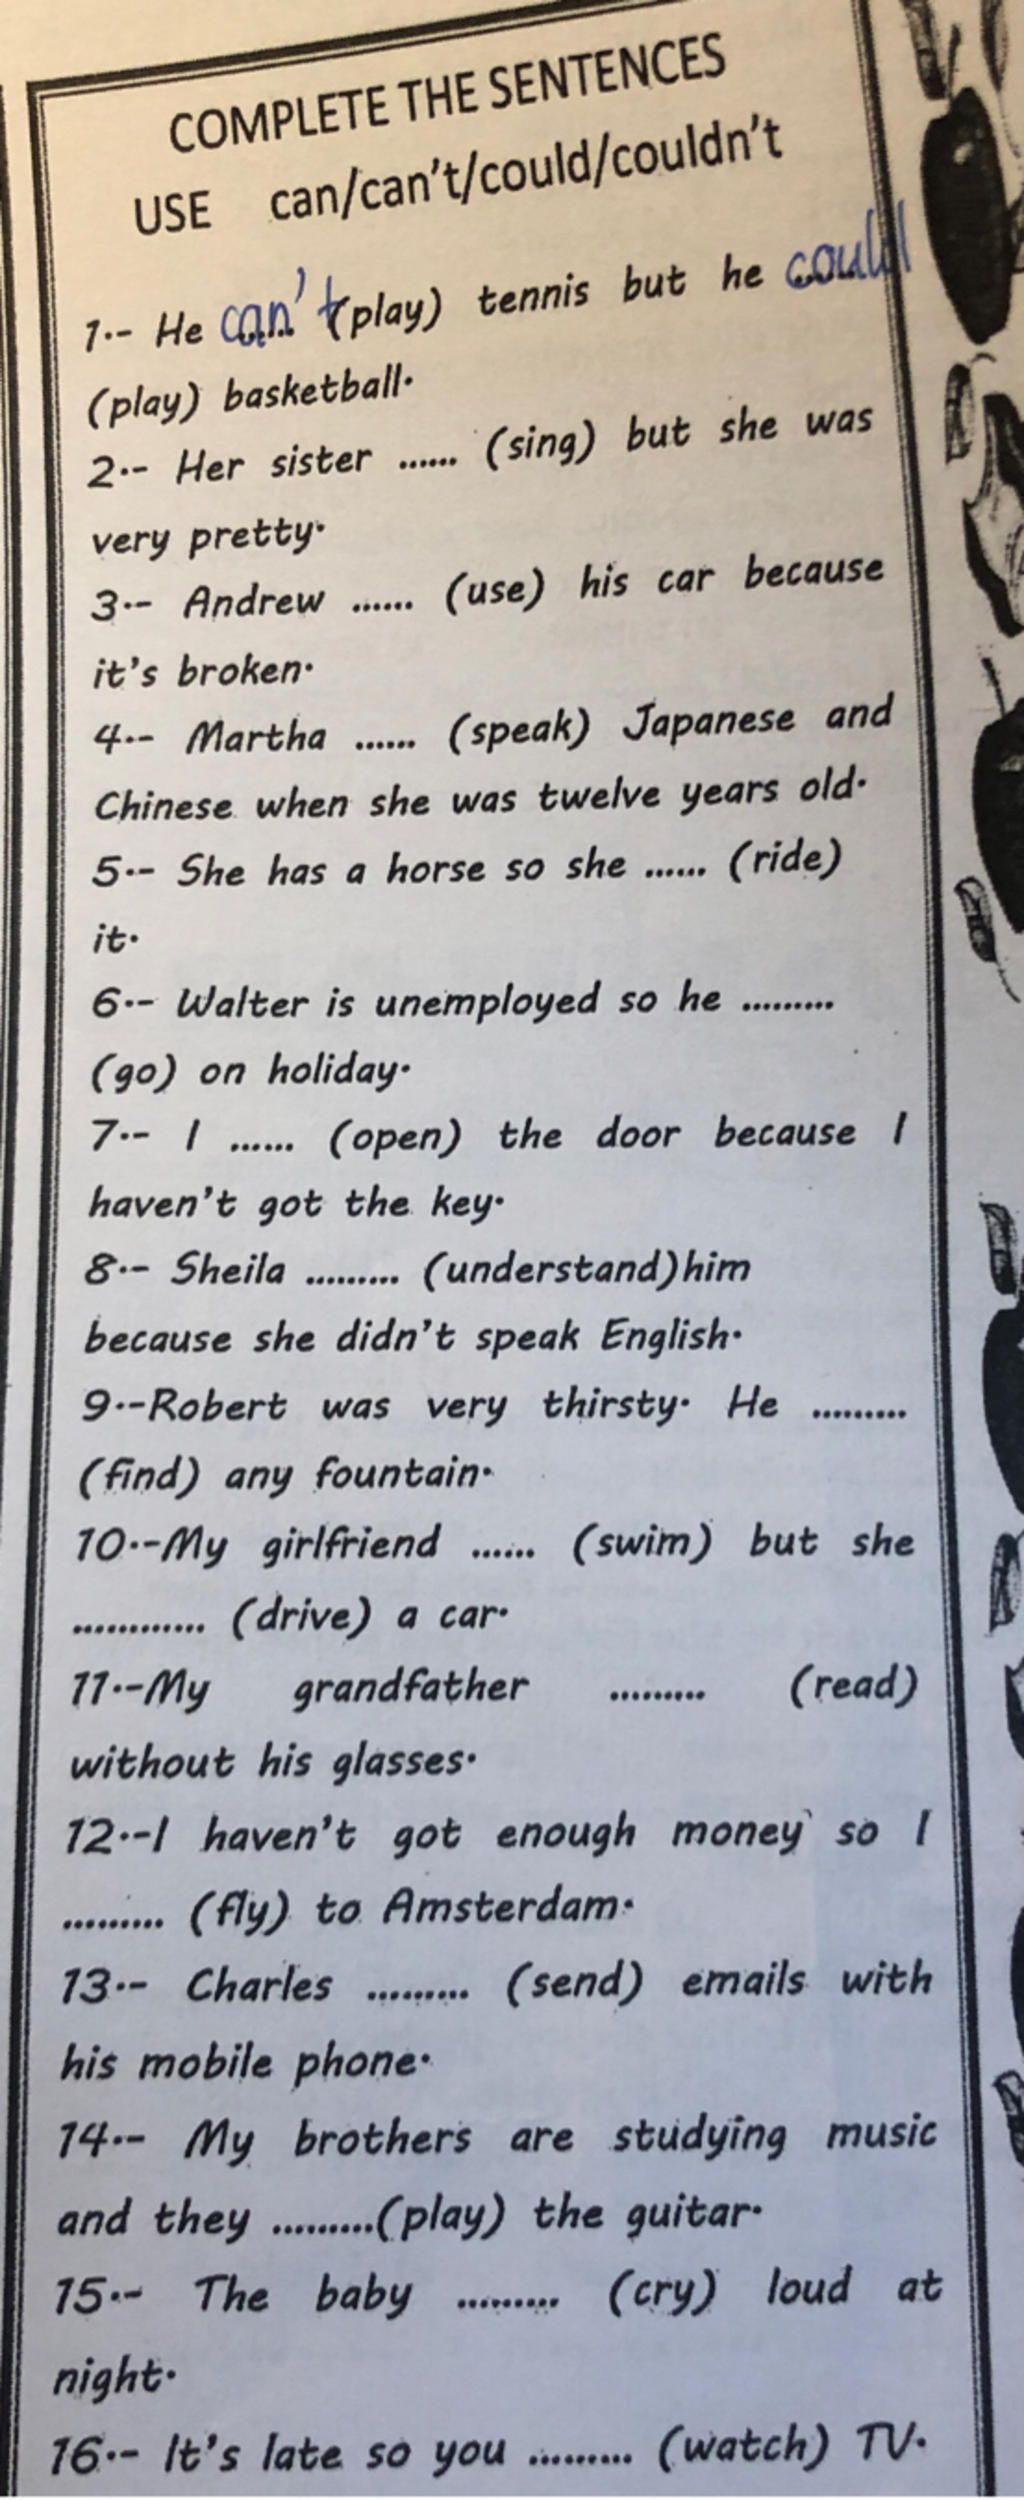 COMPLETE THE SENTENCES
USE can/can't/could/couldn't
1.- He can't (play) tennis but he could
(play) basketball.
2.- Her sister ...... (sing) but she was
very pretty.
3.- Andrew ...... (use) his car because
it's broken.
4.- Martha ...... (speak) Japanese and
Chinese when she was twelve years old.
5.- She has a horse so she ...... (ride)
it.
6.- Walter is unemployed so he .........
(go) on holiday.
7.- I ...... (open) the door because I
haven't got the key.
8.- Sheila ......... (understand)him
because she didn't speak English.
9.-Robert was very thirsty. He .........
(find) any fountain.
10.-My girlfriend ...... (swim) but she
............ (drive) a car.
11.-My grandfather ......... (read)
without his glasses.
12.-I haven't got enough money so I
......... (fly) to Amsterdam.
13.- Charles ......... (send) emails with
his mobile phone.
14.- My brothers are studying music
and they .........(play) the guitar.
15.- The baby ......... (cry) loud at
night.
16.- It's late so you ......... (watch) TV.